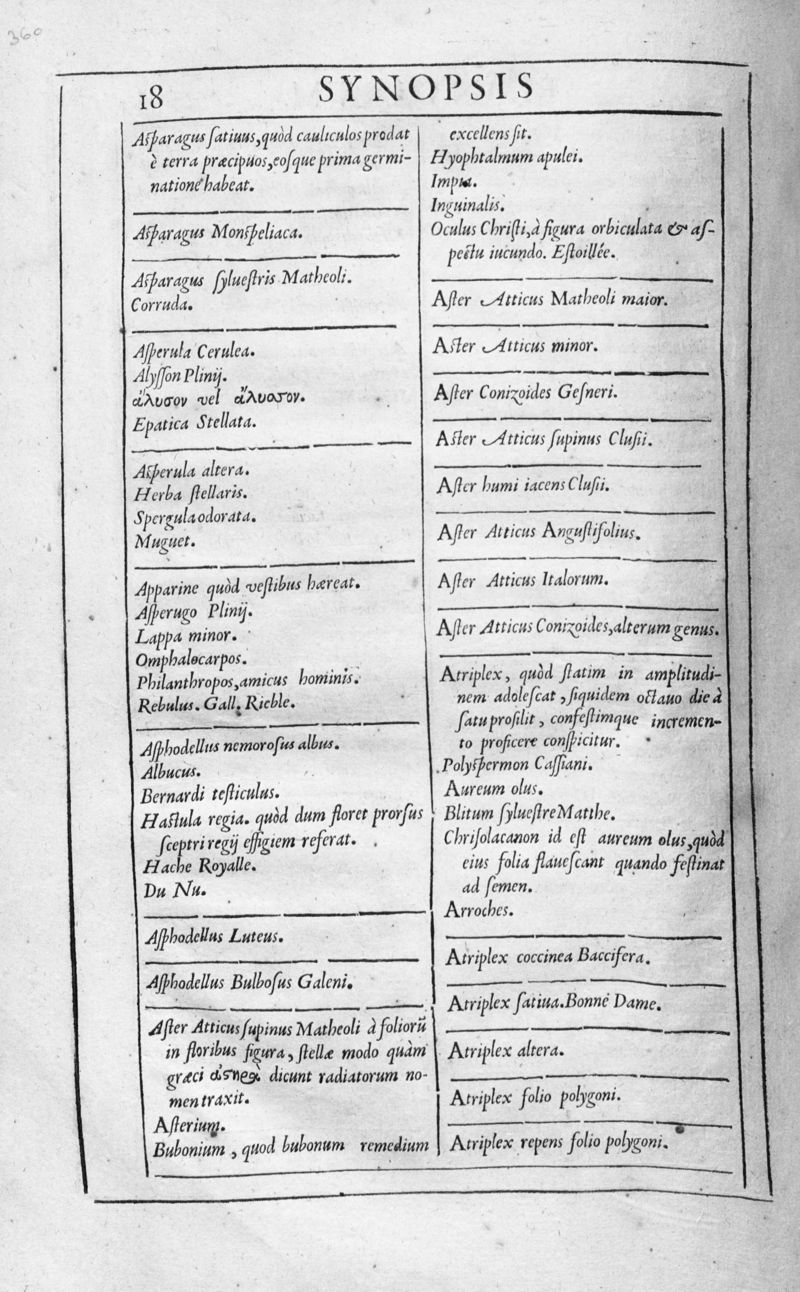 360
18
SYNOPSIS
Asparagus sativus, quòd cauliculos prodat
è terra præcipuos, eosque prima germi-
natione habeat.
Asparagus Monspeliaca.
Asparagus sylvestris Matheoli.
Corruda.
Asperula Cerulea.
Alysson Plinij.
ἄλυσον vel ἄλυσσον.
Epatica Stellata.
Asperula altera.
Herba stellaris.
Spergula odorata.
Muguet.
Apparine quòd vestibus hæreat.
Asperugo Plinij.
Lappa minor.
Omphalocarpos.
Philanthropos, amicus hominis.
Rebulus. Gall. Rieble.
Asphodellus nemorosus albus.
Albucus.
Bernardi testiculus.
Hastula regia. quòd dum floret prorsus
sceptri regij effigiem referat.
Hache Royalle.
Du Nu.
Asphodellus Luteus.
Asphodellus Bulbosus Galeni.
Aster Atticus supinus Matheoli à foliorũ
in floribus figura, stellæ modo quàm
græci dicunt radiatorum no-
men traxit.
Asterium.
Bubonium, quod bubonum remedium
excellens sit.
Hyophtalmum apulei.
Inguinalis.
Oculus Christi, à figura orbiculata & as-
pectu iucundo. Estoillée.
Aster Atticus Matheoli maior.
Aster Atticus minor.
Aster Conizoides Gesneri.
Aster Atticus supinus Clusii.
Aster humi iacens Clusii.
Aster Atticus Angustifolius.
Aster Atticus Italorum.
Aster Atticus Conizoides, alterum genus.
Atriplex, quòd statim in amplitudi-
nem adolescat, siquidem octauo die à
satu prosilit, confestimque incremen-
to proficere conspicitur.
Polyspermon Cassiani.
Aureum olus.
Blitum sylvestre Matthe.
Chrisolacanon id est aureum olus, quòd
eius folia flauescant quando festinat
ad semen.
Arroches.
Atriplex coccinea Baccifera.
Atriplex satiua. Bonne Dame.
Atriplex altera.
Atriplex folio polygoni.
Atriplex repens folio polygoni.